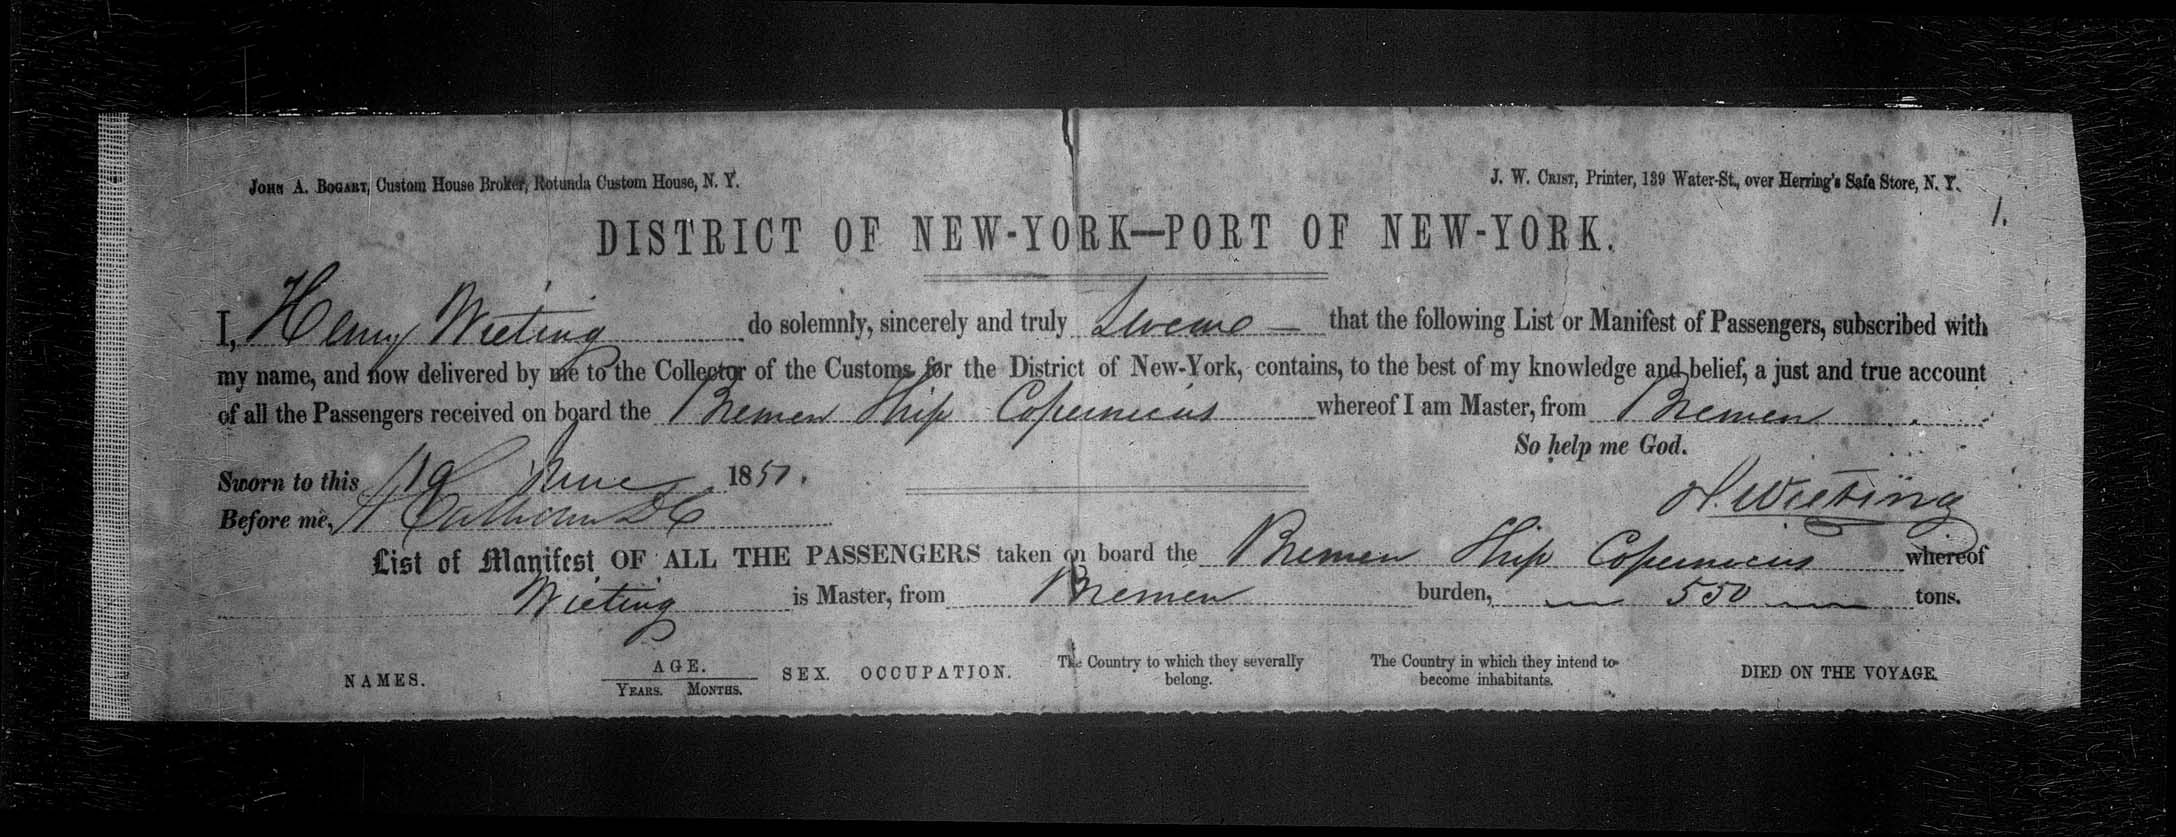 JOHN A. BOGART, Custom House Broker, Rotunda Custom House, N. Y.
J. W. CRIST, Printer, 139 Water-St., over Herring's Safe Store, N. Y.
1.
DISTRICT OF NEW-YORK—PORT OF NEW-YORK.
I, Henry Wieting do solemnly, sincerely and truly Sweare — that the following List or Manifest of Passengers, subscribed with
my name, and now delivered by me to the Collector of the Customs for the District of New-York, contains, to the best of my knowledge and belief, a just and true account
of all the Passengers received on board the Bremen Ship Copernicus whereof I am Master, from Bremen
So help me God.
Sworn to this 19 June 1851.
H. Wieting
Before me,
List of Manifest OF ALL THE PASSENGERS taken on board the Bremen Ship Copernicus whereof
Wieting is Master, from Bremen burden, — 550 — tons.
NAMES. AGE. YEARS. MONTHS. SEX. OCCUPATION. The Country to which they severally belong. The Country in which they intend to become inhabitants. DIED ON THE VOYAGE.